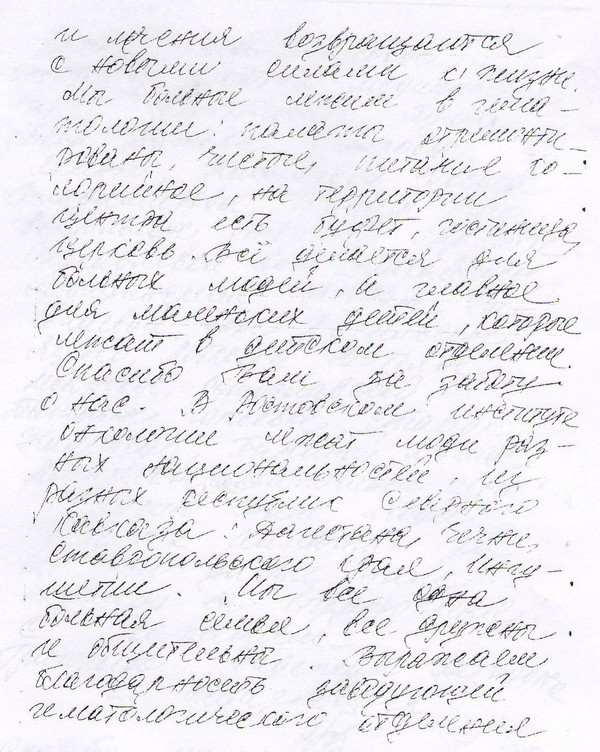 и лечения возвращаются
с новыми силами к жизни.
Мы больные лежим в гема-
тологии: палаты отремонти-
рованы, чистые, питание ка-
лорийное, на территории
центра есть буфет, гостиница,
церковь. Всё делается для
больных людей, и главное
для маленьких детей, которые
лежат в детском отделении.
Спасибо Вам за заботу
о нас. В Ростовском институте
онкологии лежат люди раз-
ных национальностей, из
разных республик Северного
Кавказа: Дагестана, Чечни,
Ставропольского края, Ингу-
шетии. Мы все одна
большая семья, все дружны
и общительны. Выражаем
благодарность заведующей
гематологического отделения